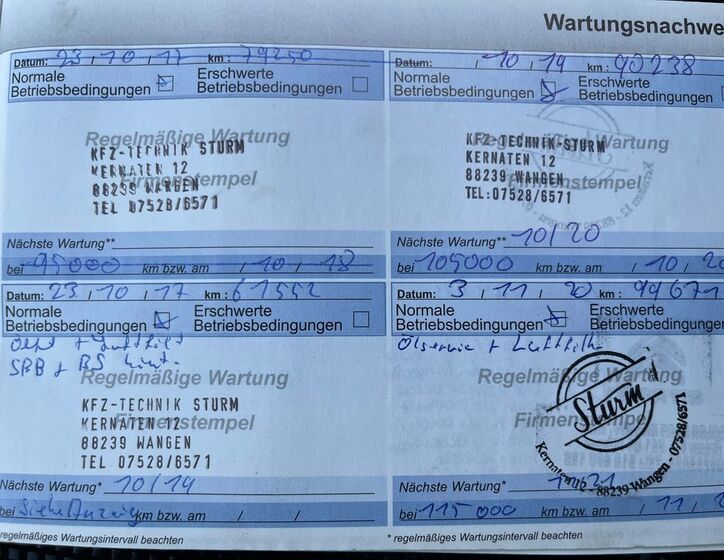 Wartungsnachwe
Datum: 23 / 10 / 17 km: 79250
Normale Betriebsbedingungen
Erschwerte Betriebsbedingungen
Regelmäßige Wartung
KFZ-TECHNIK STURM
KERNATEN 12
88239 WANGEN
Firmenstempel
TEL 07528/6571
Nächste Wartung**
bei 95000 km bzw. am / 10 / 18
Datum: / 10 / 19 km: 90238
Normale Betriebsbedingungen
Erschwerte Betriebsbedingungen
Regelmäßige Wartung
KFZ-TECHNIK-STURM
KERNATEN 12
88239 WANGEN
Firmenstempel
TEL:07528/6571
Nächste Wartung** 10/20
bei 105000 km bzw. am / 10 / 20
Datum: 23 / 10 / 17 km: 61552
Normale Betriebsbedingungen
Erschwerte Betriebsbedingungen
Regelmäßige Wartung
KFZ-TECHNIK STURM
Firmenstempel
KERNATEN 12
88239 WANGEN
TEL 07528/6571
Nächste Wartung* 10/19
bei km bzw. am / /
* regelmäßiges Wartungsintervall beachten
Datum: 3 / 11 / 20 km: 99671
Normale Betriebsbedingungen
Erschwerte Betriebsbedingungen
Ölservice + Luftfilt
Regelmäßige Wartung
Firmenstempel
Sturm
Kernaten 12 - 88239 Wangen - 07528/6571
Nächste Wartung* 21
bei 115000 km bzw. am / 11 / 2
* regelmäßiges Wartungsintervall beachten